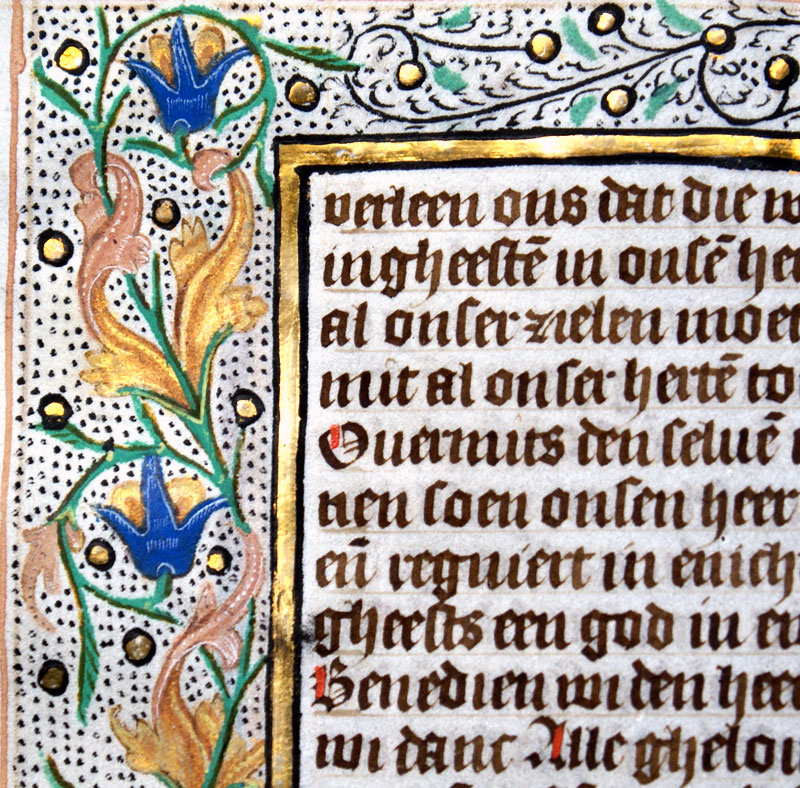 verleen ons dat die
ingheestē in onsē
al onser zielen
mit al onser hertē
Ouermits den seluē
nen soen onsen heer
eñ regniert in
gheests een god in
Benedien wi den
wi danc Alle